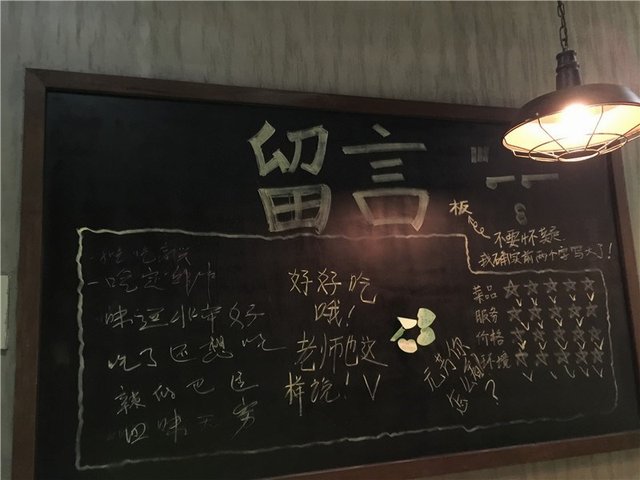 留言
板
不要怀疑
我确定前两个字写大了!
菜品☆☆☆☆☆
服务☆☆☆☆☆
价格☆☆☆☆☆
环境☆☆☆☆☆
味 非常好
吃了还想吃
辣的巴适
回味无穷
好好吃
哦!
老师也这
样说!
元芳你
怎么看
?